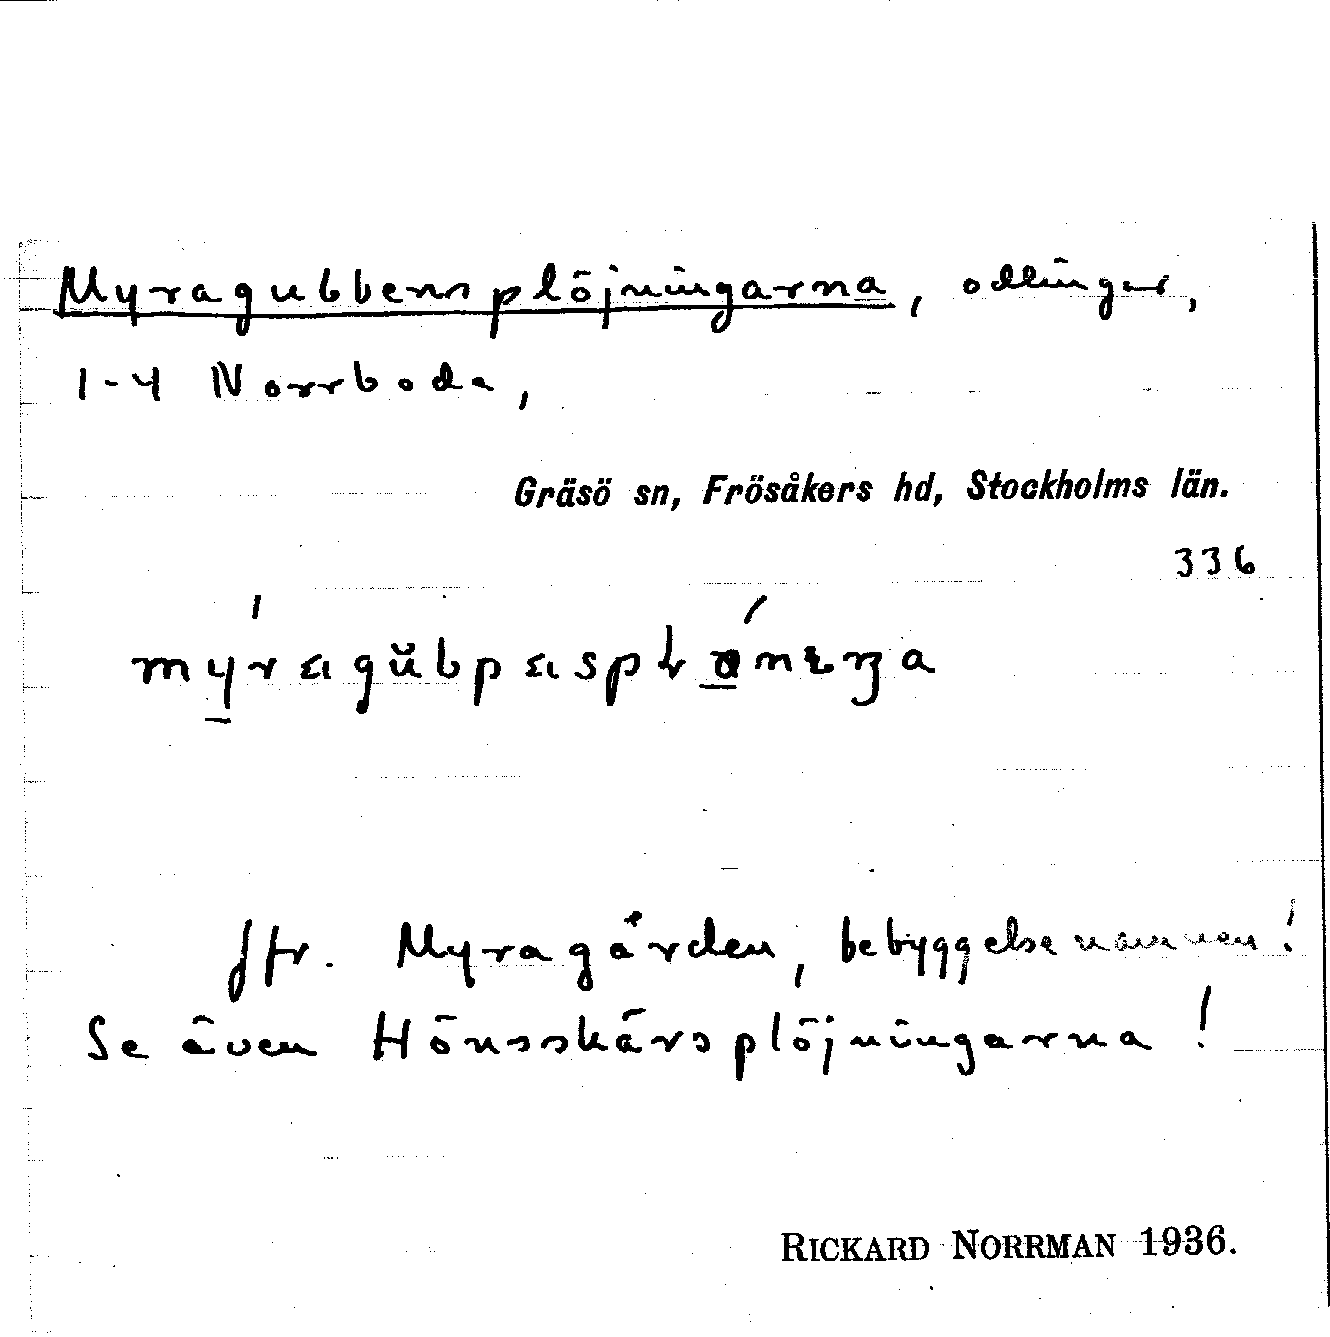 Myragubbensplöjningarna, odlingar,
1-4 Norrboda,
Gräsö sn, Frösåkers hd, Stockholms län.
336
Jfr. Myragården, bebyggelsenamnen!
Se även Hönsskärsplöjningarna!
RICKARD NORRMAN 1936.